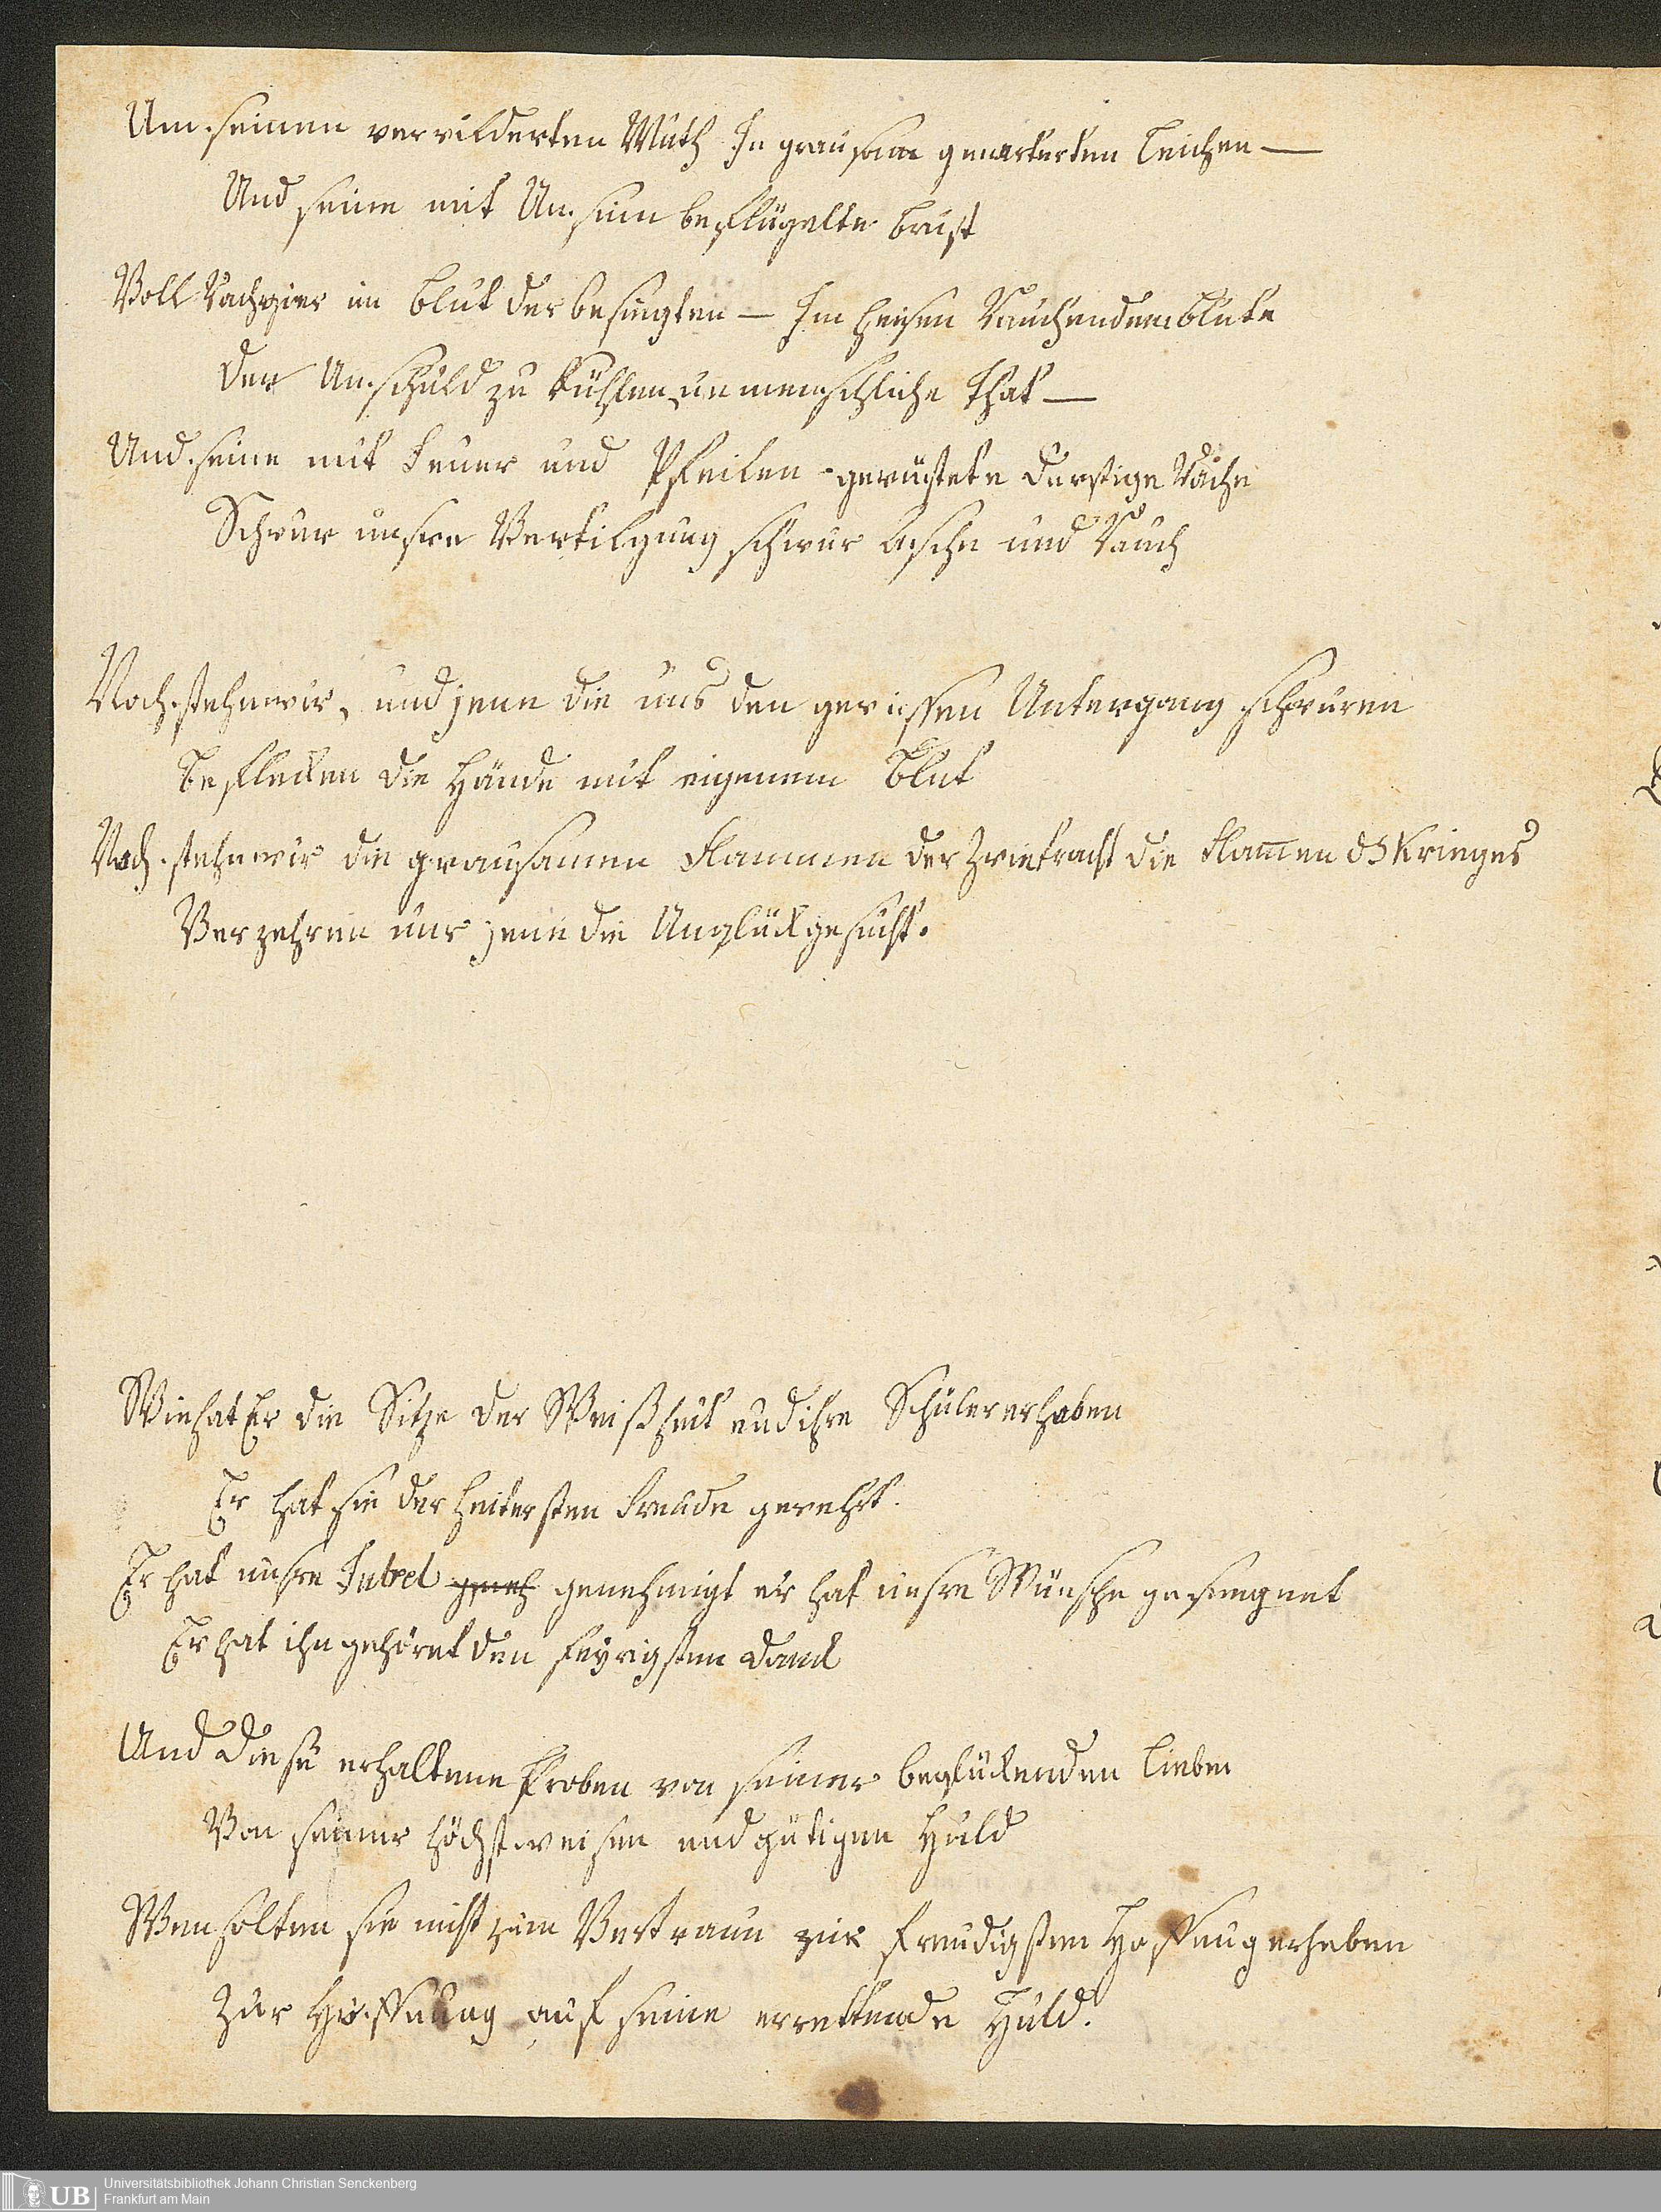 Um seinen verwilderten Muth In grausam gemarterten Leichen —
Und seine mit Unsinn beflügelte Brust
Voll Rachgier im Blut der besiegten — Im heisen Rauchendem Blute
Der Unschuld zu kühlen, unmenschliche That —
Und seine mit Feuer und Pfeilen gerüstete durstige Rache
Schwur unsre Vertilgung schwur Asche und Rauch
Noch stehn wir, und jene die uns den gewissen Untergang schwuren
Beflecken die Hände mit eigenem Blut
Noch stehn wir die grausamen Flammen der Zwietracht die Flam̄en des Krieges
Verzehren nur jene die Unglück gesucht.
Wie hat Er die Sitze der Weißheit und ihre Schüler erhaben
Er hat sie der heitersten Freude gewehrt.
Er hat unsre Jubel geneh genehmigt er hat unsre Wünsche gesengnet
Er hat ihn gehöret den feyrigsten Danck
Und diese erhaltene Proben von seiner beglückenden Liebe
Von seiner höchst weisen und gütigen Huld
Wen solten sie nicht zum Vertraun zur freudigsten Hoffnug erheben
Zur Hoffnung auf seine errettende Huld.
UB
Universitätsbibliothek Johann Christian Senckenberg
Frankfurt am Main